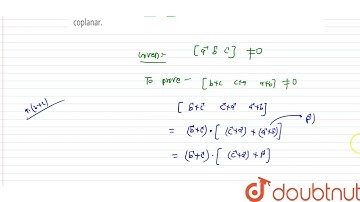 coplanar.
Given:- [a⃗ b⃗ c⃗] ≠0
To prove - [b+c c+a a+b] ≠0
a·(b+c)
[b⃗+c⃗ c⃗+a⃗ a⃗+b⃗]
= (b⃗+c⃗)·[(c⃗+a⃗) × (a⃗+b⃗)] p⃗)
= (b⃗+c⃗)·[(c⃗+a⃗) × p⃗]
doubtnut